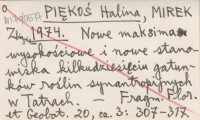 PIĘKOŚ Halina, MIREK
Z... 1974. Nowe maksima
wysokościowe i nowe stano-
wiska kilkudziesięciu gatun-
ków roślin synantropijnych
w Tatrach. — Fragm. Flor.
et Geobot. 20, cz. 3: 307-317.